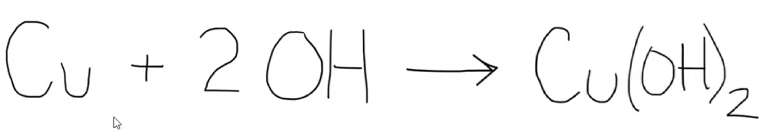 Cu + 2 OH → Cu(OH)₂